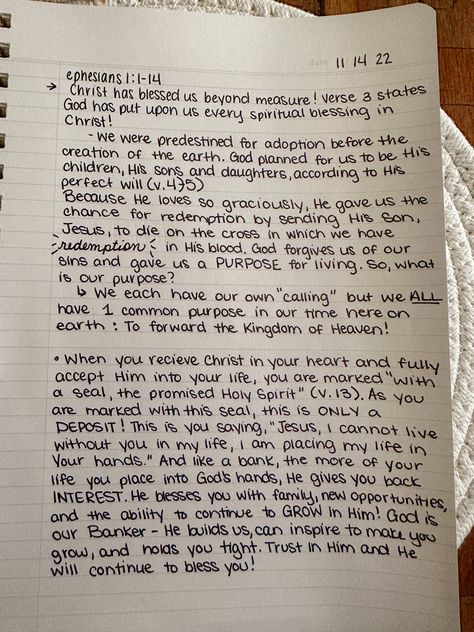 date 11 14 22
ephesians 1:1-14
→ Christ has blessed us beyond measure! Verse 3 states
God has put upon us every spiritual blessing in
Christ!
- We were predestined for adoption before the
creation of the earth. God planned for us to be His
children, His sons and daughters, according to His
perfect will (v.4,5)
Because He loves so graciously, He gave us the
chance for redemption by sending His Son,
Jesus, to die on the cross in which we have
redemption in His blood. God forgives us of our
sins and gave us a PURPOSE for living. So, what
is our purpose?
↳ We each have our own "calling" but we ALL
have 1 common purpose in our time here on
earth: To forward the Kingdom of Heaven!
• When you recieve Christ in your heart and fully
accept Him into your life, you are marked "with
a seal, the promised Holy Spirit" (v.13). As you
are marked with this seal, this is ONLY A
DEPOSIT! This is you saying, "Jesus, I cannot live
without you in my life, I am placing my life in
Your hands." And like a bank, the more of your
life you place into God's hands, He gives you back
INTEREST. He blesses you with family, new opportunities,
and the ability to continue to GROW in Him! God is
our Banker - He builds us, can inspire to make you
grow, and holds you tight. Trust in Him and He
will continue to bless you!